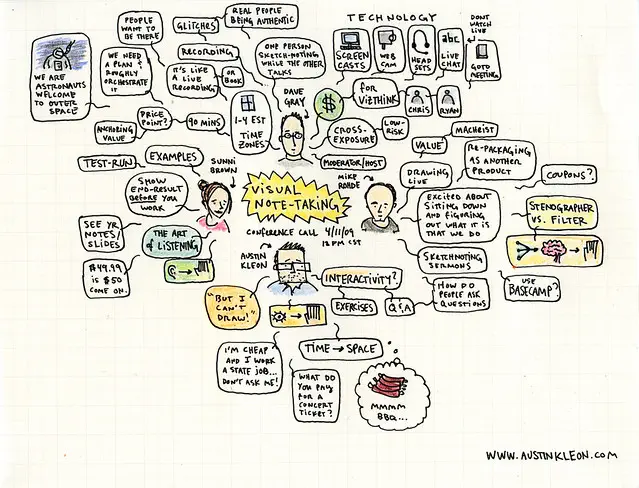 PEOPLE
WANT TO
BE THERE
GLITCHES
REAL PEOPLE
BEING AUTHENTIC
TECHNOLOGY
DONT
WATCH
LIVE
WE NEED
A PLAN &
ROUGHLY
ORCHESTRATE
IT
RECORDING
ONE PERSON
SKETCH-NOTING
WHILE THE OTHER
TALKS
SCREEN
CASTS
WEB
CAM
HEAD
SETS
abc
LIVE
CHAT
GOTO
MEETING
WE ARE
ASTRONAUTS
WELCOME
TO OUTER
SPACE
IT'S LIKE
A LIVE
RECORDING
OR
BOOK
DAVE
GRAY
$
FOR
VIZTHINK
CHRIS
RYAN
PRICE
POINT?
90 MINS
1-4 EST
TIME
ZONES?
ANCHORING
VALUE
CROSS-
EXPOSURE
LOW-
RISK
VALUE
MACHEIST
MODERATOR/HOST
RE-PACKAGING
AS ANOTHER
PRODUCT
TEST-RUN
EXAMPLES
SUNNI
BROWN
MIKE
ROHDE
DRAWING
LIVE
COUPONS?
SHOW
END-RESULT
BEFORE YOU
WORK
VISUAL
NOTE-TAKING
CONFERENCE CALL 4/11/09
12 PM CST
EXCITED ABOUT
SITTING DOWN
AND FIGURING
OUT WHAT IT IS
THAT WE DO
STENOGRAPHER
VS. FILTER
SEE YR
NOTES/
SLIDES
THE ART
OF LISTENING
AUSTIN
KLEON
SKETCHNOTING
SERMONS
$49.99
IS $50
COME ON.
INTERACTIVITY?
HOW DO
PEOPLE ASK
QUESTIONS
USE
BASECAMP?
"BUT I
CAN'T
DRAW!"
EXERCISES
Q&A
I'M CHEAP
AND I WORK
A STATE JOB...
DON'T ASK ME!
TIME → SPACE
WHAT DO
YOU PAY
FOR A
CONCERT
TICKET?
MMMM
BBQ...
WWW.AUSTINKLEON.COM